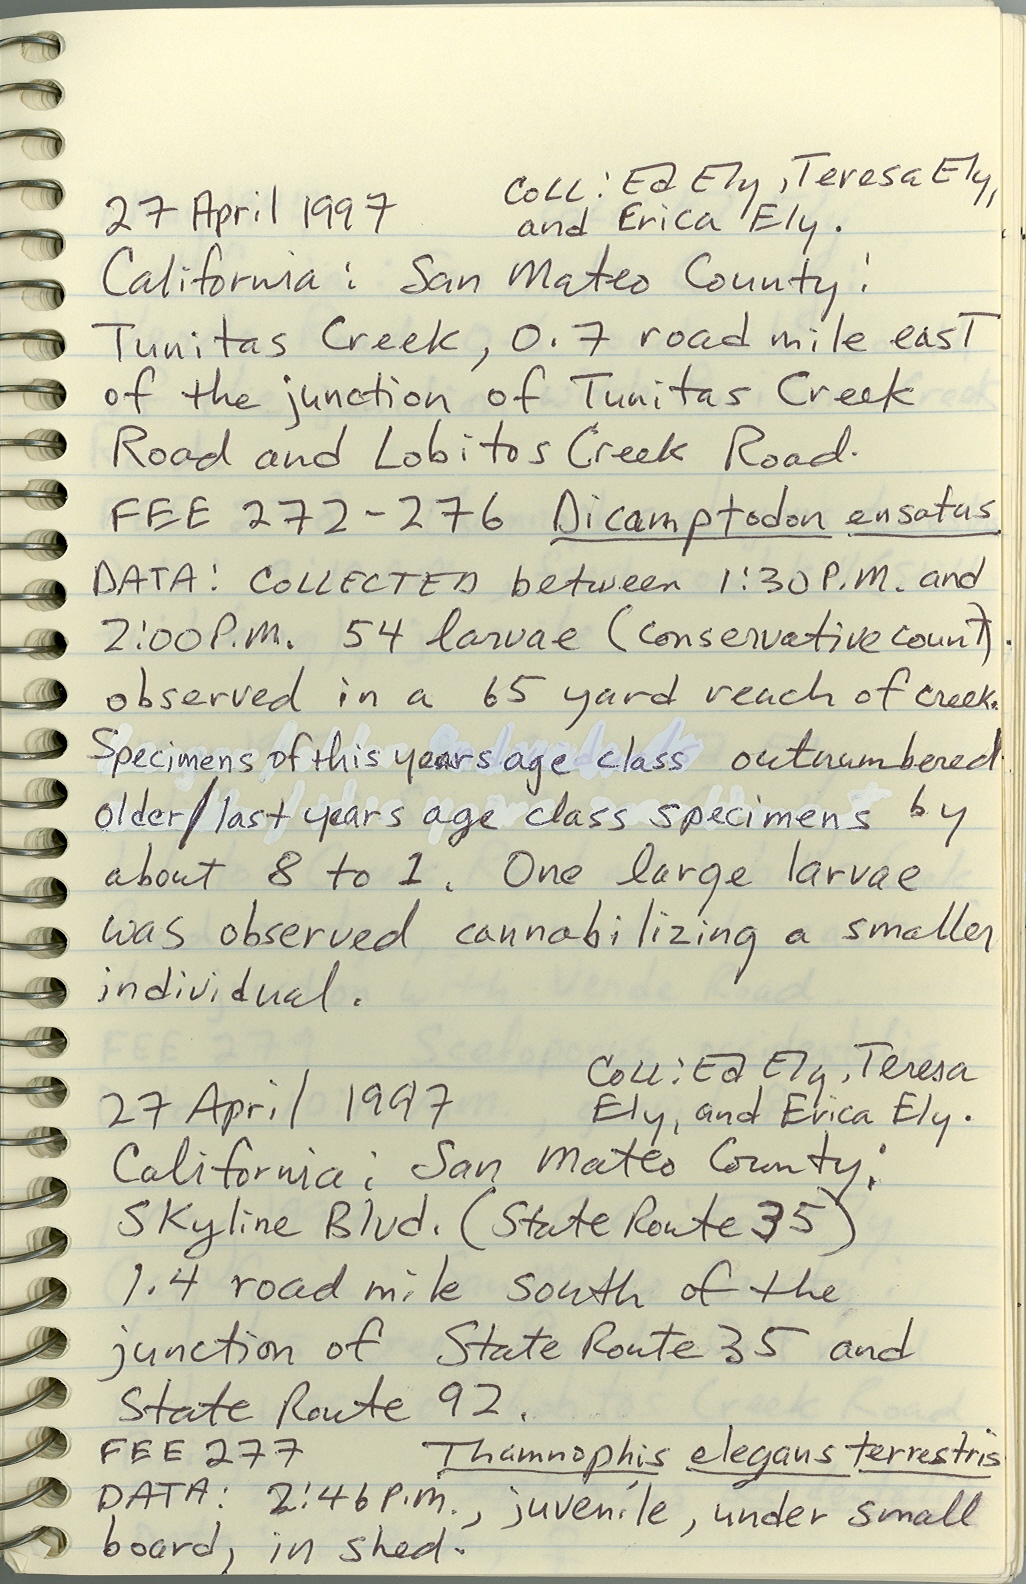 27 April 1997 Coll: Ed Ely, Teresa Ely,
and Erica Ely.
California: San Mateo County:
Tunitas Creek, 0.7 road mile east
of the junction of Tunitas Creek
Road and Lobitos Creek Road.
FEE 272-276 Dicamptodon ensatus
DATA: COLLECTED between 1:30 P.M. and
2:00 P.M. 54 larvae (conservative count)
observed in a 65 yard reach of creek.
Specimens of this years age class outnumbered
older/last years age class specimens by
about 8 to 1. One large larvae
was observed cannabilizing a smaller
individual.
27 April 1997 Coll: Ed Ely, Teresa
Ely, and Erica Ely.
California: San Mateo County:
Skyline Blvd. (State Route 35)
1.4 road mile south of the
junction of State Route 35 and
State Route 92.
FEE 277 Thamnophis elegans terrestris
DATA: 2:46 P.M., juvenile, under small
board, in shed.